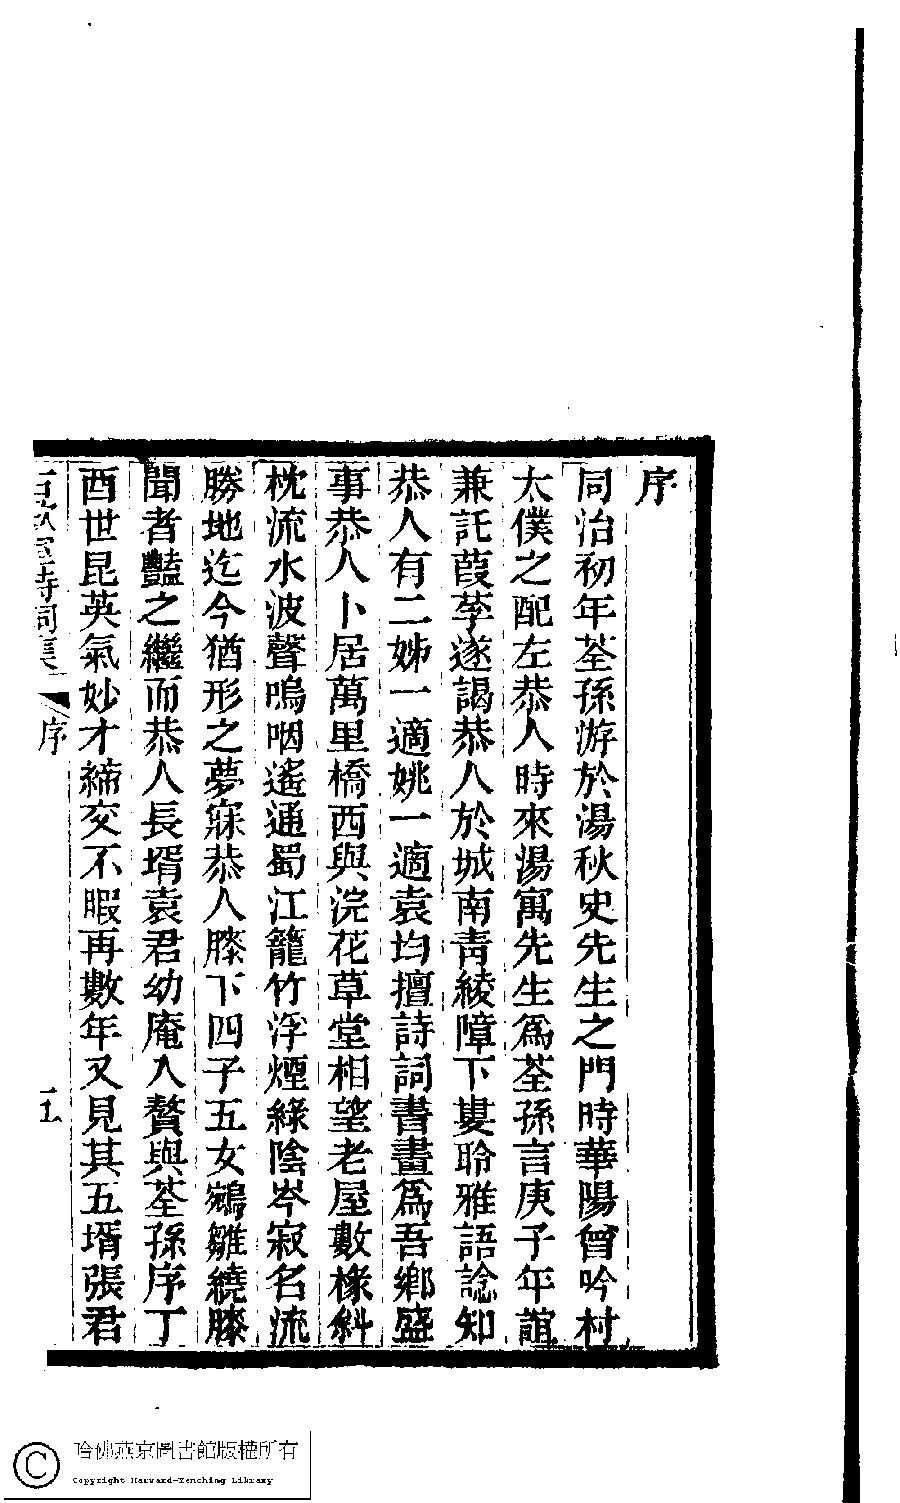 序
同治初年荃孫游於湯秋史先生之門時華陽曾吟村
太僕之配左恭人時來湯寓先生爲荃孫言庚子年誼
兼託葭莩遂謁恭人於城南靑綾障下婁聆雅語諗知
恭人有二姊一適姚一適袁均擅詩詞書畫爲吾鄉盛
事恭人卜居萬里橋西與浣花草堂相望老屋數椽斜
枕流水波聲嗚咽遙通蜀江籠竹浮煙綠陰岑寂名流
勝地迄今猶形之夢寐恭人膝下四子五女鵷雛繞膝
聞者豔之繼而恭人長壻袁君幼庵入贅與荃孫序丁
酉世昆英氣妙才締交不暇再數年又見其五壻張君
室詩詞集
序
一
哈佛燕京圖書館版權所有
Copyright Harvard-Yenching Library